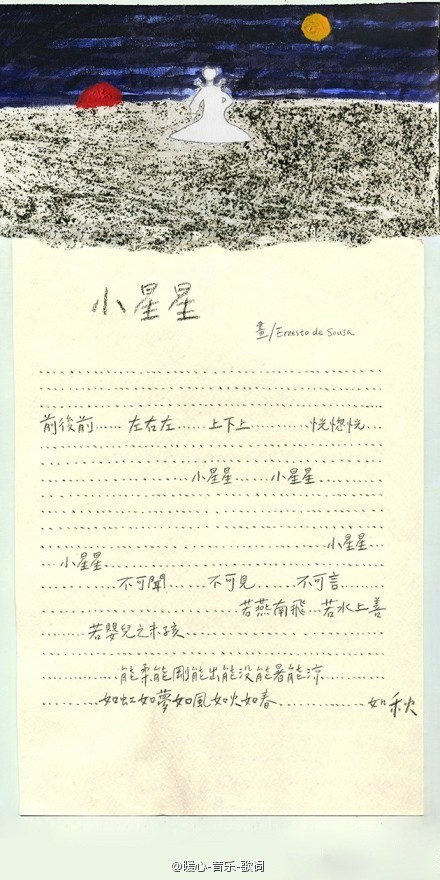 小星星
畫/Ernesto de Sousa
前後前......左右左......上下上............恍惚恍...
小星星......小星星
小星星
小星星
不可聞......不可見......不可言
若燕南飛 若水上善
若嬰兒之未孩
能柔能剛能出能没能暑能涼
如虹如夢如風如火如春..................如秋
@暖心-音乐-歌词